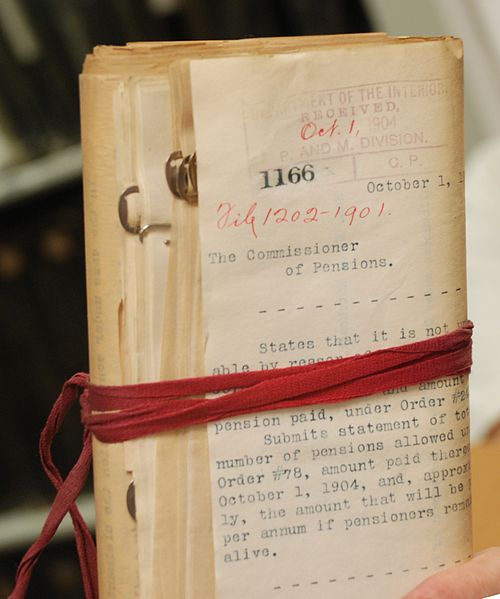 DEPARTMENT OF THE INTERIOR,
RECEIVED,
Oct. 1, 1904
P. AND M. DIVISION.
1166
C. P.
October 1, 1
File 1202-1901.
The Commissioner
of Pensions.
States that it is not
able by reason of
and amount
pension paid, under Order #24
Submits statement of tot
number of pensions allowed un
Order #78, amount paid there
October 1, 1904, and, approx
ly, the amount that will be
per annum if pensioners rema
alive.